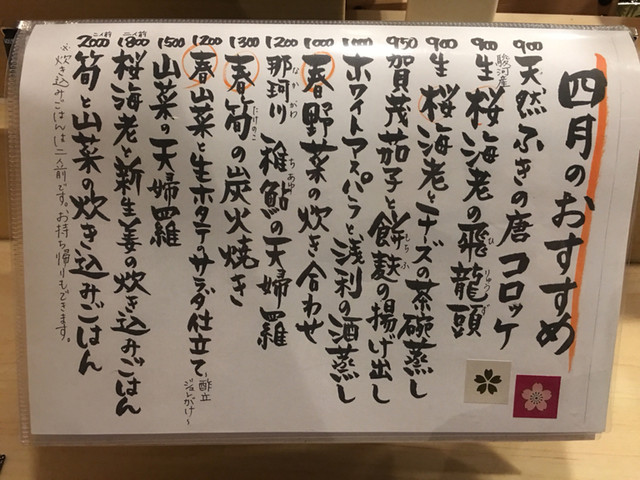 四月のおすすめ
900 天然ふきの唐コロッケ
900 駿河産 生桜海老の飛龍頭
900 生桜海老とチーズの茶碗蒸し
950 賀茂茄子と餅麩の揚げ出し
1000 ホワイトアスパラと浅利の酒蒸し
1000 春野菜の炊き合わせ
1200 那珂川 稚鮎の天婦羅
1300 春筍の炭火焼き
1200 春山菜と生ホタテのサラダ仕立て 酢立ジュレがけ〜
1500 山菜の天婦羅
二人前 1800 桜海老と新生姜の炊き込みごはん
二人前 2000 筍と山菜の炊き込みごはん
※炊き込みごはんは二人前です。お持ち帰りもできます。